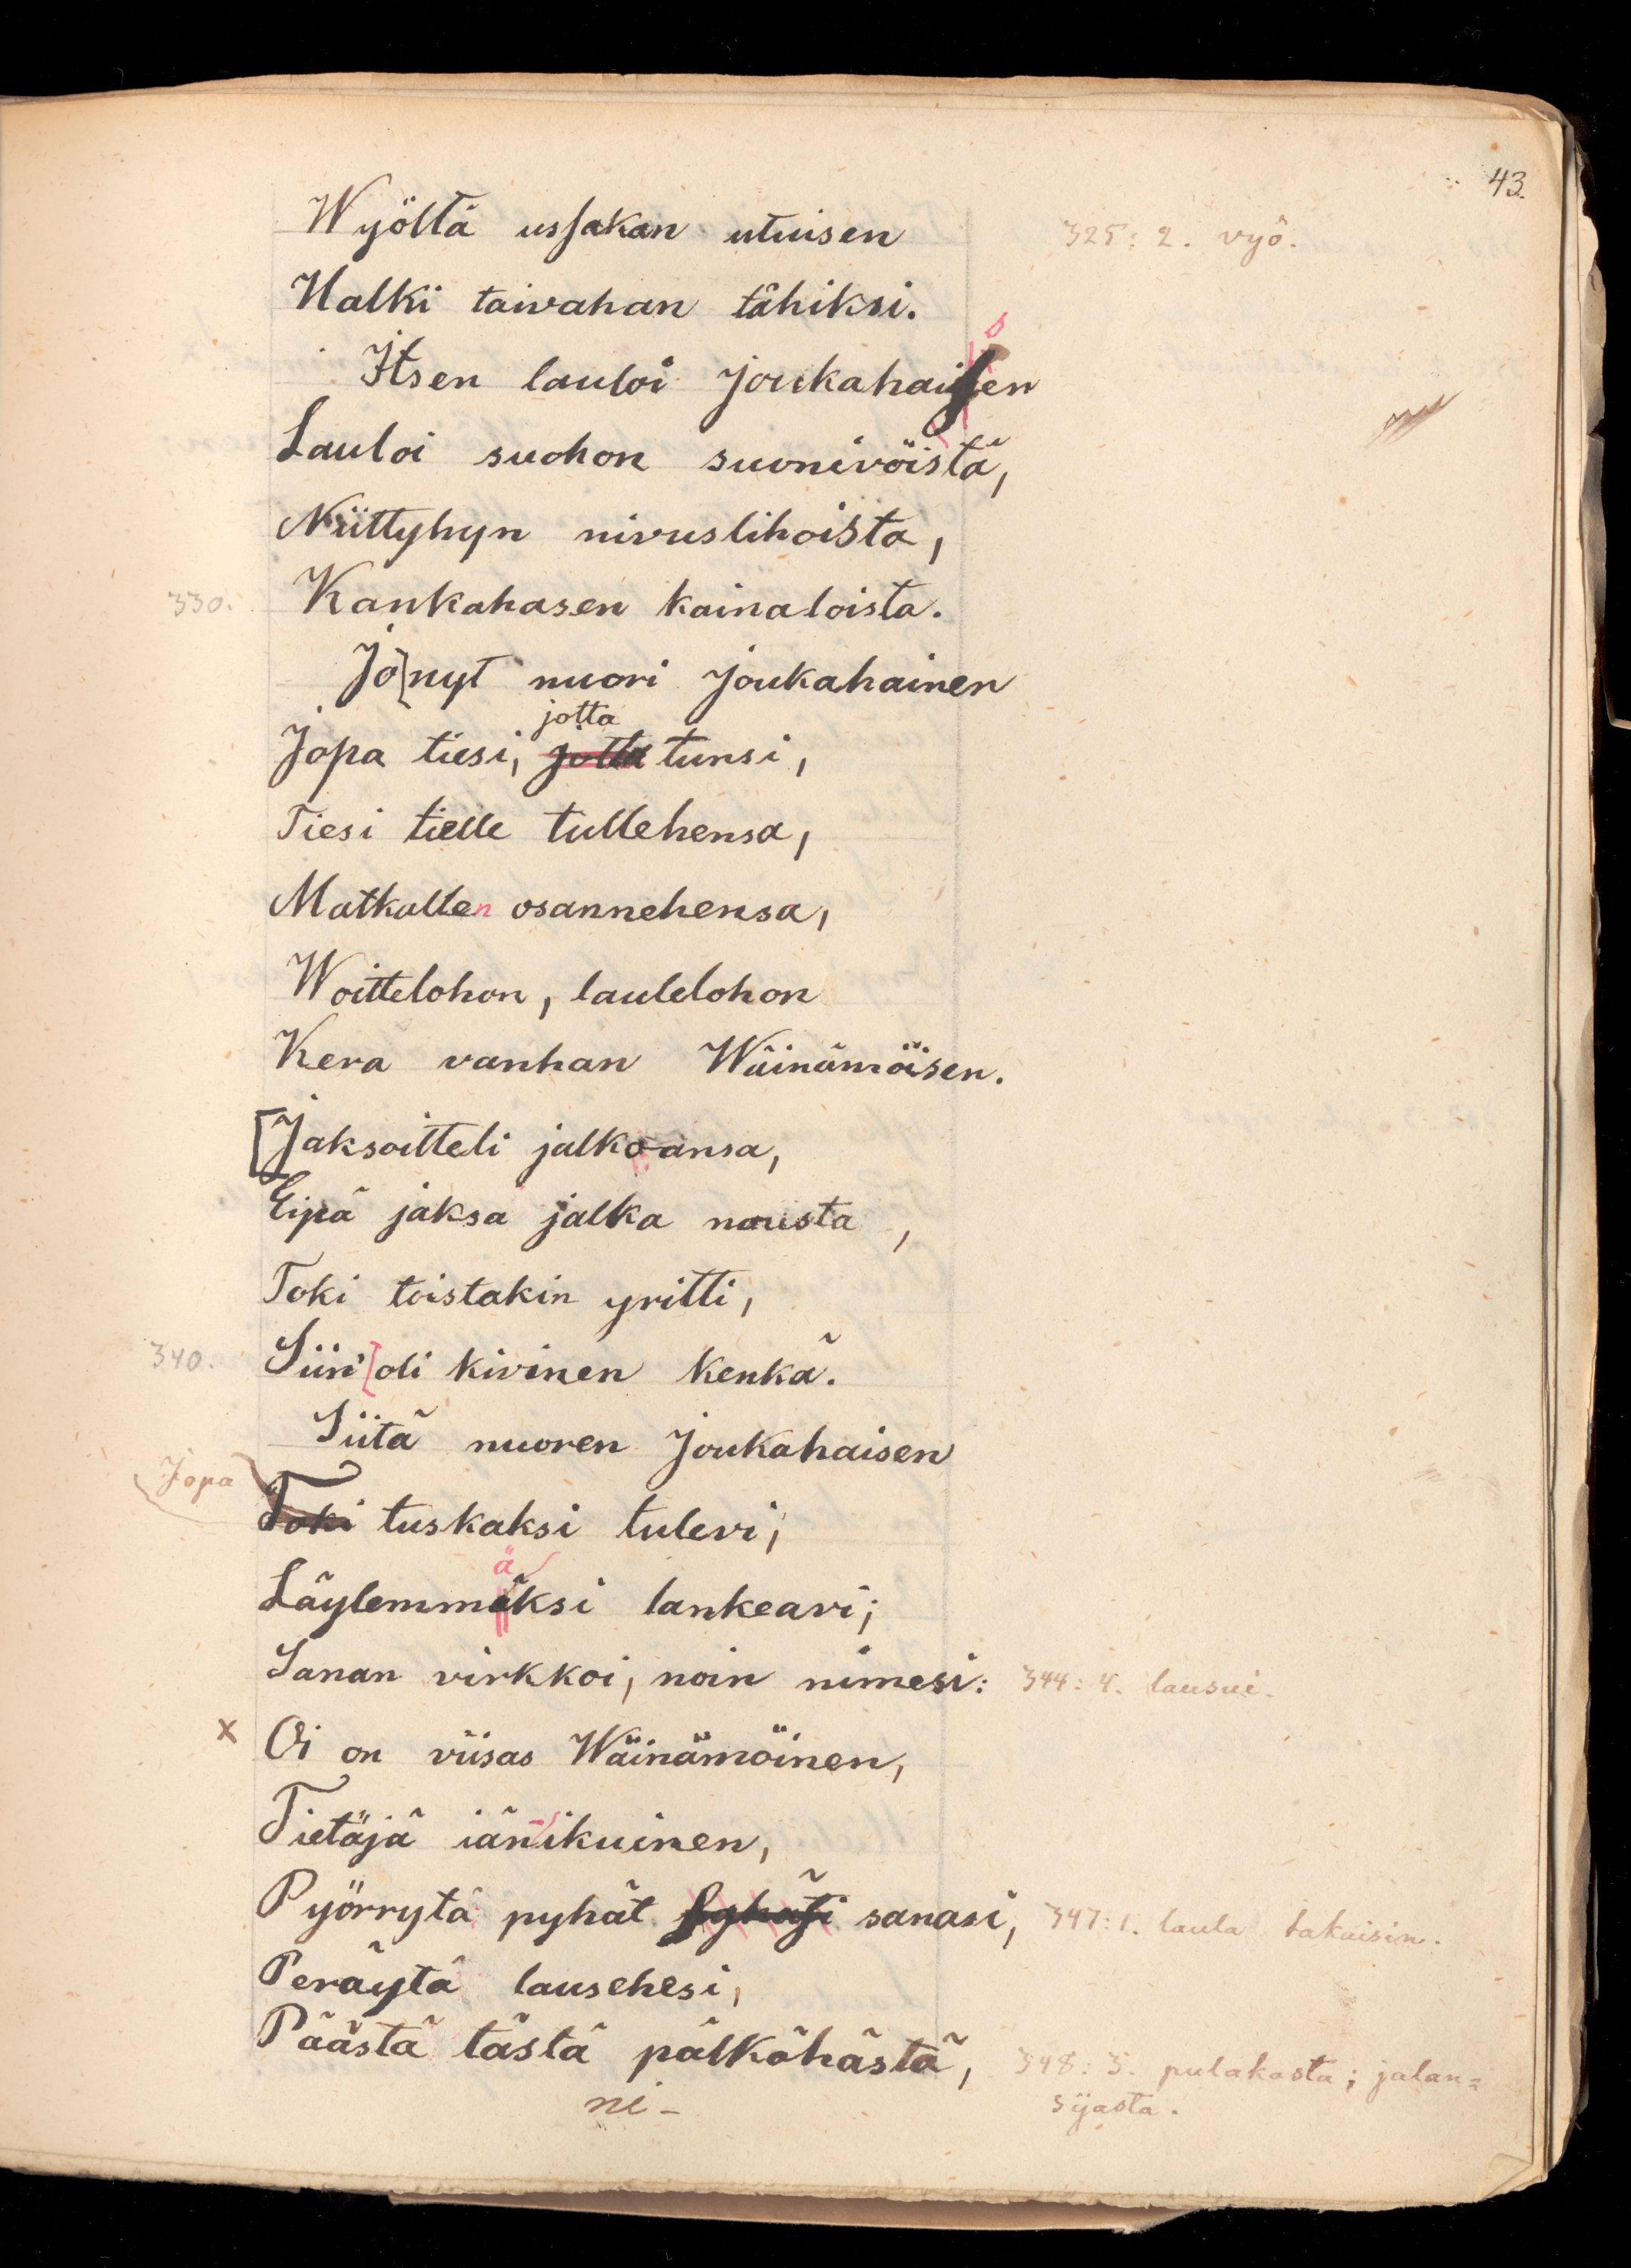 43.
Wyöltä ussakan utuisen 325: 2. vyö.
Halki taivahan tähiksi.
s
Itsen lauloi Joukahaisen
Lauloi suohon suonivöistä,
Niittyhyn nivuslihoista,
330. Kankahasen kainaloista.
Jo[nyt nuori Joukahainen
jotta
Jopa tiesi, jotta tunsi,
Tiesi tielle tullehensa,
Matkallen osannehensa,
Woittelohon, laulelohon
Kera vanhan Wäinämöisen.
[Jaksoitteli jalkoansa,
Eipä jaksa jalka nousta,
Toki toistakin yritti,
340. Siin'[oli kivinen kenkä.
Siitä nuoren Joukahaisen
Jopa
Toki tuskaksi tulevi;
ä
Läylemmäksi lankeavi;
Sanan virkkoi, noin nimesi: 344: 4. lausui.
x Oi on viisas Wäinämöinen,
Tietäjä iän-ikuinen,
Pyörrytä pyhät sanasi, 347: 1. laula takaisin.
Peräytä lausehesi,
Päästä tästä pälkähästä, 348: 3. pulakasta; jalan=
sijasta.
ni-